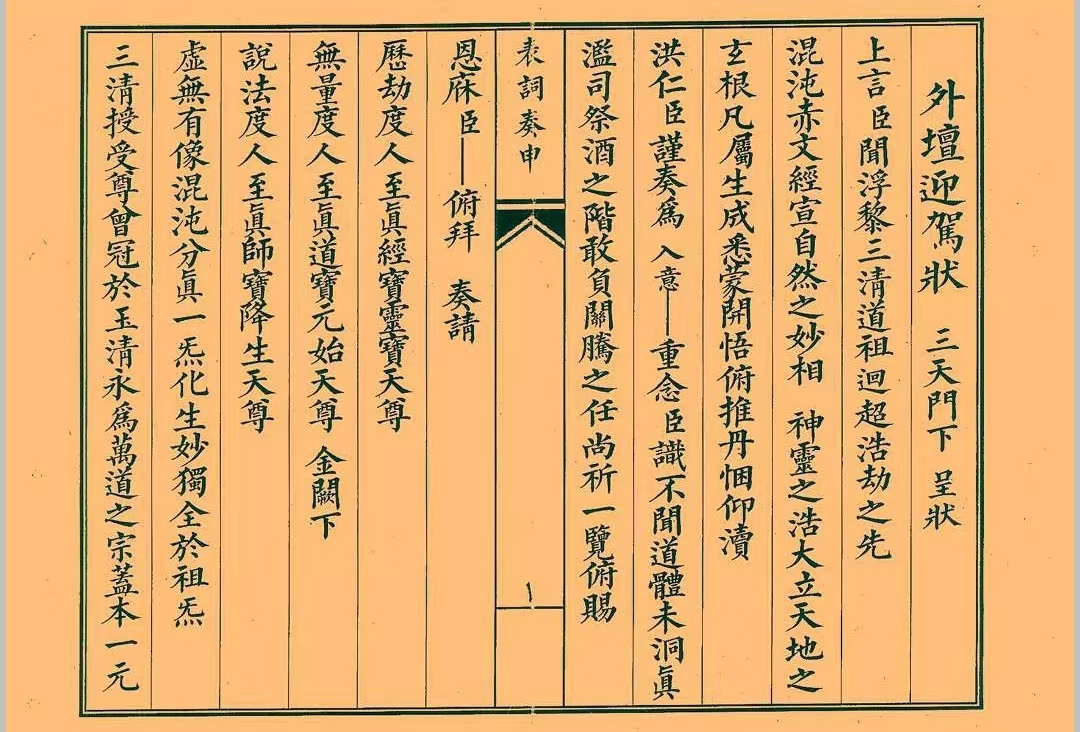 外壇迎駕狀　三天門下　呈狀
上言臣聞浮黎三清道祖迥超浩劫之先
混沌赤文經宣自然之妙相　神靈之浩大立天地之
玄根凡屬生成悉蒙開悟俯推丹悃仰瀆
洪仁臣謹奏為　入意——重念臣識不聞道體未洞眞
濫司祭酒之階敢負關騰之任尚祈一覽俯賜
表詞奏申
一
恩庥臣——俯拜　奏請
歷劫度人至眞經寶靈寶天尊
無量度人至眞道寶元始天尊　金闕下
說法度人至眞師寶降生天尊
虛無有像混沌分眞一炁化生妙獨全於祖炁
三清授受尊曾冠於玉清永爲萬道之宗蓋本一元